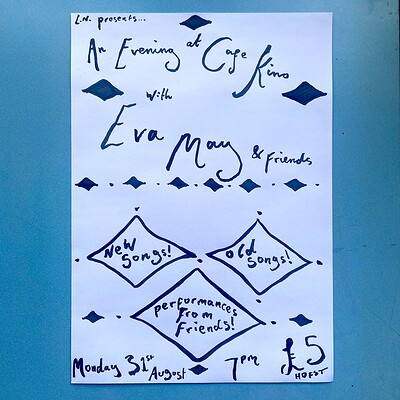 L.N. presents...
An Evening at Cafe Kino
with
Eva May & Friends
New Songs!
Old Songs!
performances
from
Friends!
Monday 31st August 7pm £5